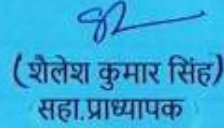 (शैलेश कुमार सिंह)
सहा.प्राध्यापक